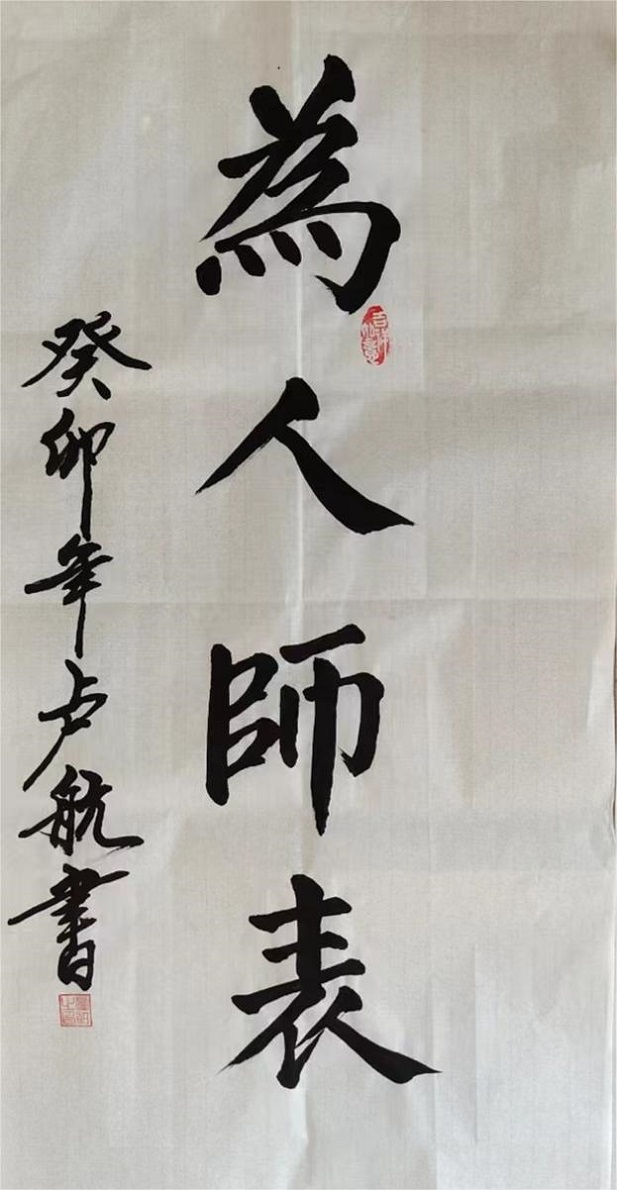 為人師表
癸卯年卢航書